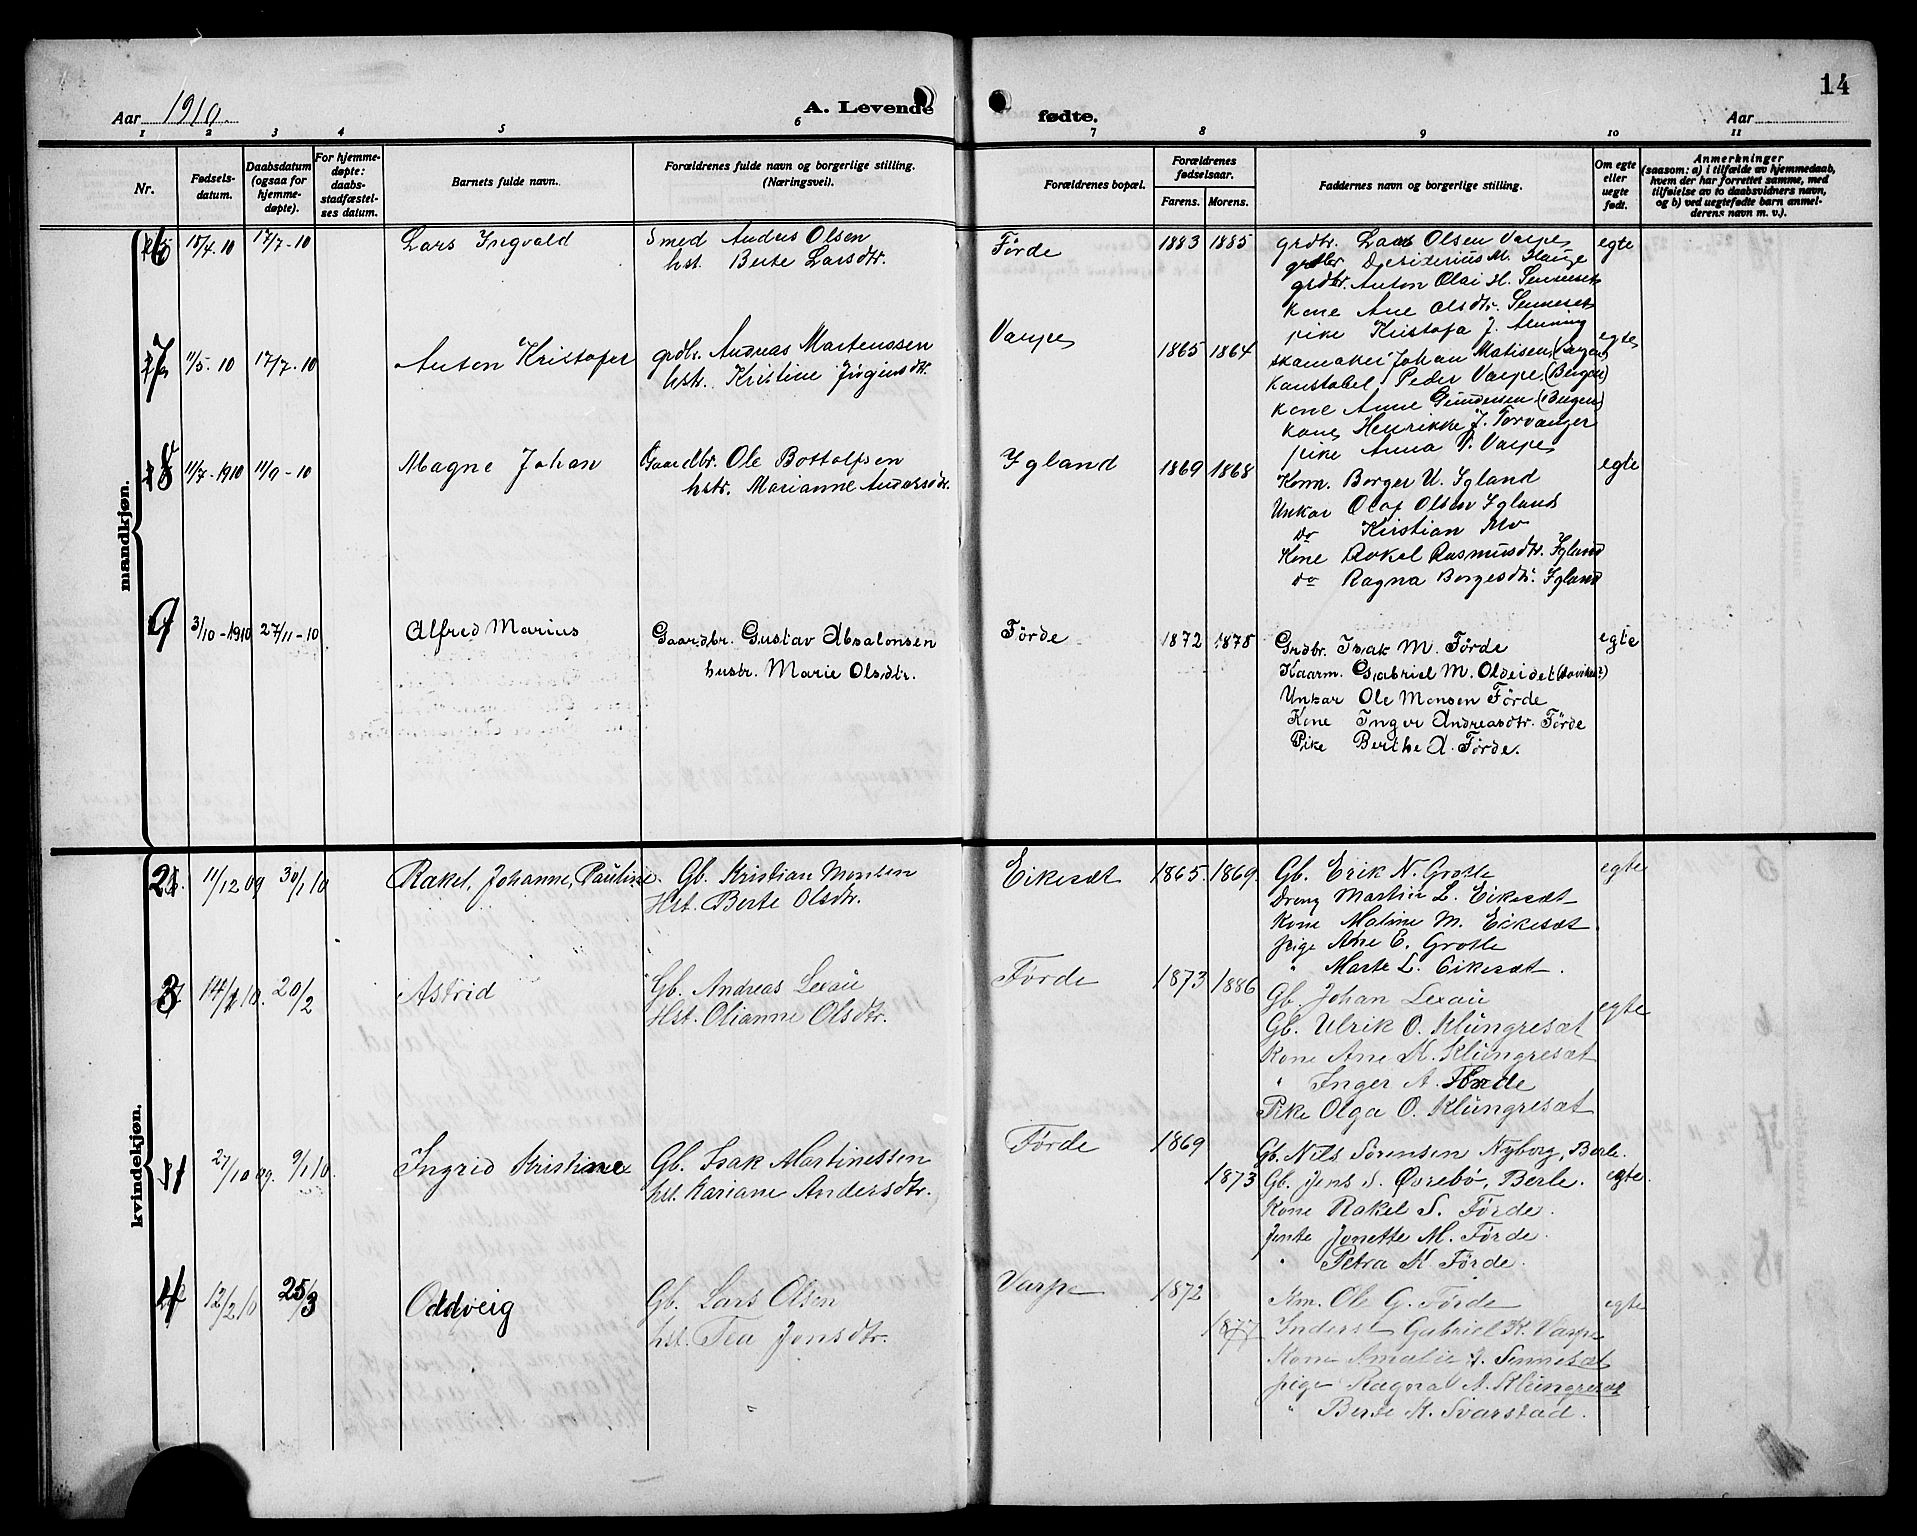 14
Aar 1910.
A. Levende
fødte.
Aar
1 2 3 4 5 6 7 8 9 10 11
Nr.
Fødsels-
datum.
Daabsdatum
(ogsaa for
hjemme-
døpte).
For hjemme-
døpte:
daabs-
stadfæstel-
ses datum.
Barnets fulde navn.
Forældrenes fulde navn og borgerlige stilling.
(Næringsvei).
Forældrenes bopæl.
Forældrenes
fødselsaar.
Farens. Morens.
Faddernes navn og borgerlige stilling.
Om egte
eller
uegte
født.
Anmerkninger
(saasom: a) i tilfælde av hjemmedaab,
hvem der har forrettet samme, med
tilføielse av to daabsvidners navn,
og b) ved uegtefødte barn anmel-
derens navn m. v.).
mandkjøn.
6 15/4.10 17/7-10 Lars Ingvald Smed Anders Olsen Förde 1883 1885 grdbr. Lars Olsen Varpe egte
hst. Berte Larsdtr. grdbr. Desiderius M. Hauge
grdbr. Anton Olai H. Senneset
Kone Ane Olsdtr. Senneset
pike Kristofa J. Alming
7 11/5.10 17/7.10 Anton Kristofer grdbr. Andreas Martenssen Varpe 1865 1864 skomaker Johan Matisen (Bergen) egte
hstr. Kristine Jörginsdtr. Konstabel Peder Varpe (Bergen)
Kone Anne Gundersen (Bergen)
Kone Henrikke J. Torvanger
pike Anna Varpe
8 11/7-1910 11/9-10 Magne Johan Gaardbr. Ole Bottolfsen Ygland 1869 1868 Konm. Borger U. Ygland egte
hstr. Marianne Andersdtr. Unkar Olaf Olsen Ygland
do Kristian Mo
Kone Rakel Rasmusdtr. Ygland
do Ragna Borgesdtr. Ygland
9 3/10-1910 27/11-10 Alfred Marius Gaardbr. Gustav Absalonsen Förde 1872 1878 Grdbr. Isak M. Förde egte
hustr. Marie Olsdtr. Kaarm. Gabriel M. Oldeidet (Davikes?)
Unkar Ole Monsen Förde
Kone Inger Andreasdtr. Förde
Pike Berthe A. Förde.
kvindekjøn.
2 11/12 09 30/1 10 Rakel, Johanne, Pauline. Gb. Kristian Monsen Eikesæt 1865. 1869. Gb. Erik N. Grotle egte
Hst. Berte Olsdtr. Dreng Martin L. Eikesæt
Kone Maline M. Eikesæt
pige Ane E. Grotle
" Marte L. Eikesæt.
3 14/1 10. 20/2 Astrid Gb. Andreas Lexau Førde 1873 1886 Gb. Johan Lexau egte
Hst. Olianne Olsdtr. Gb. Ulrik O. Klungresæt
Kone Ane M. Klungresæt
" Inger A. Førde
Pike Olga O. Klungresæt
1 27/10 09. 9/1 10 Ingrid Kristiane Gb. Isak Martinessen Førde 1869 Gb. Nils Sörensen Nyborg, Berle.
hst. Kariane Andersdtr. 1873 Gb. Jens S. Øvrebø, Berle. egte
Kone Rakel S. Førde.
Jente Jonette M. Førde.
" Petra M. Førde.
4 12/2 10 25/3 Oddveig Gb. Lars Olsen Varpe 1872 Km. Ole G. Førde egte
hst. Tea Jonsdtr. 1877 Inderst Gabriel K. Varpe
Kone Amalie A. Sennesæt
pige Ragna A. Klungresæt
" Berte M. Svarstad.